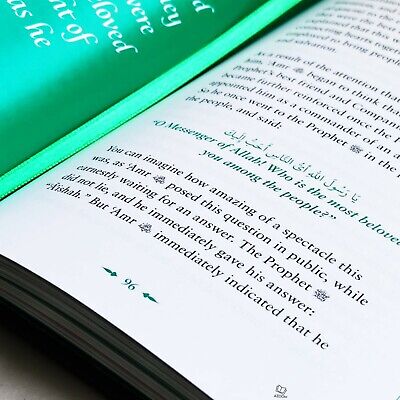 d
ney
were
eloved
nt of
as he
being people
salvation.
As a result of the attention that
began to think that
Prophet's best friend and Compani
became further reinforced once the
appointed him as a commander of an a
So he once went to the Prophet ﷺ in the
the people, and said:
يَا رَسُولَ اللهِ أَيُّ النَّاسِ أَحَبُّ إِلَيْكَ
"O Messenger of Allah! Who is the most beloved
you among the people?"
You can imagine how amazing of a spectacle this
was, as 'Amr posed this question in public, while
earnestly waiting for an answer. The Prophet ﷺ
did not lie, and he immediately gave his answer:
"'Aishah." But 'Amr immediately indicated that he
96